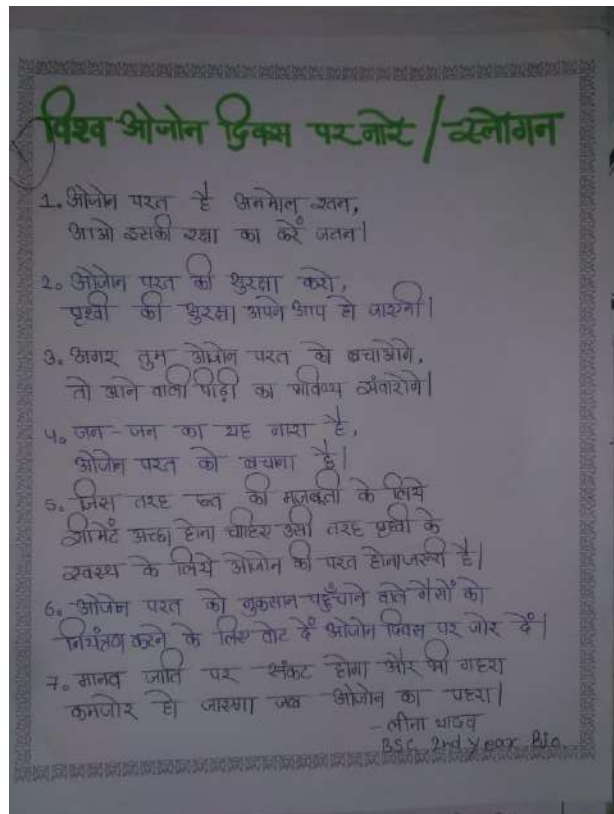 विश्व ओजोन दिवस पर नारे / स्लोगन
1. ओजोन परत है अनमोल रतन,
आओ इसकी रक्षा का करें जतन।
2. ओजोन परत की सुरक्षा करो,
पृथ्वी की सुरक्षा अपने आप हो जाएगी।
3. अगर तुम ओजोन परत को बचाओगे,
तो आने वाली पीढ़ी का भविष्य संवारोगे।
4. जन-जन का यह नारा है,
ओजोन परत को बचाना है।
5. जिस तरह छत की मजबूती के लिये
सीमेंट अच्छा होना चाहिए उसी तरह पृथ्वी के
स्वस्थ के लिये ओजोन की परत होना जरूरी है।
6. ओजोन परत को नुकसान पहुँचाने वाले गैसों को
नियंत्रण करने के लिए वोट दें ओजोन दिवस पर जोर दें।
7. मानव जाति पर संकट होगा और भी गहरा
कमजोर हो जाएगा जब ओजोन का पहरा।
- लीना यादव
BSC 2nd year Bio